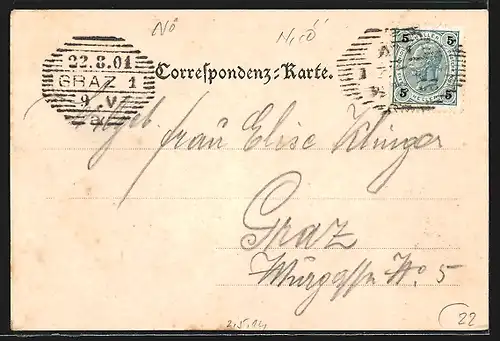 Nò Nicó
22.8.01
GRAZ 1
9.V
Correspondenz-Karte.
5 5
5 5
Frau Elise Klinger
Graz
No 5
2.5.14
22